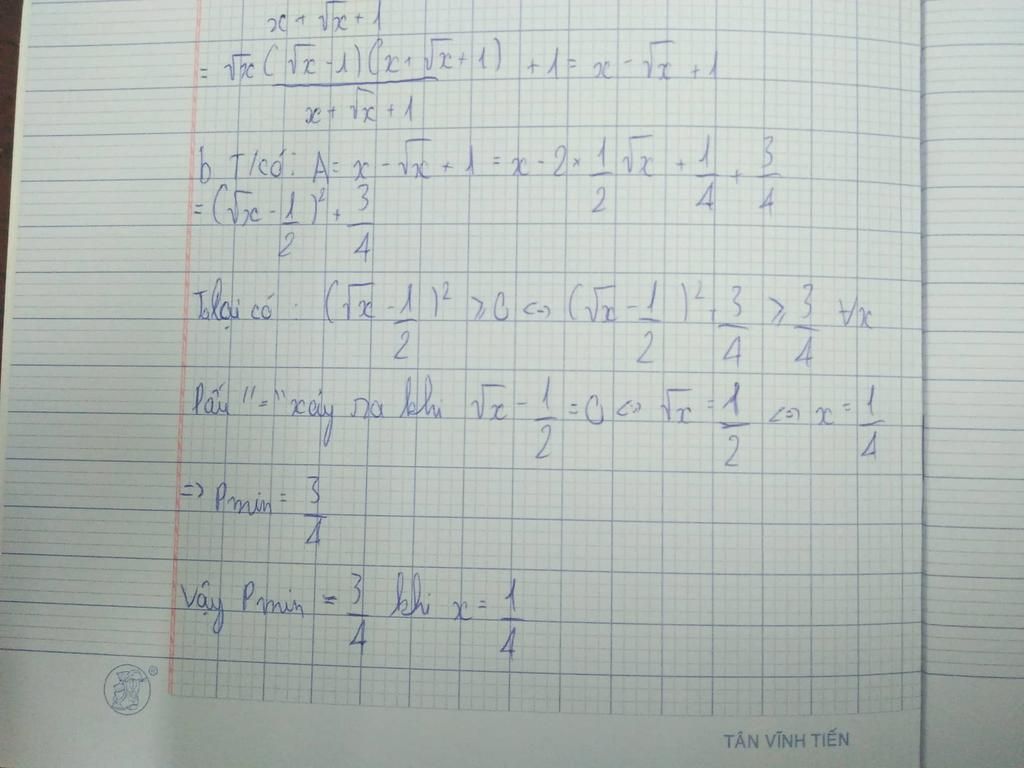 x + √x + 1
= √x(√x - 1)(x + √x + 1) / x + √x + 1 + 1 = x - √x + 1
b T/có: A = x - √x + 1 = x - 2 × 1/2 √x + 1/4 + 3/4
= (√x - 1/2)² + 3/4
Tlại có : (√x - 1/2)² ⩾ 0 <=> (√x - 1/2)² + 3/4 ⩾ 3/4 ∀x
Dấu "=" xảy ra khi √x - 1/2 = 0 <=> √x = 1/2 <=> x = 1/4
=> Pmin = 3/4
Vậy Pmin = 3/4 khi x = 1/4
TÂN VĨNH TIẾN